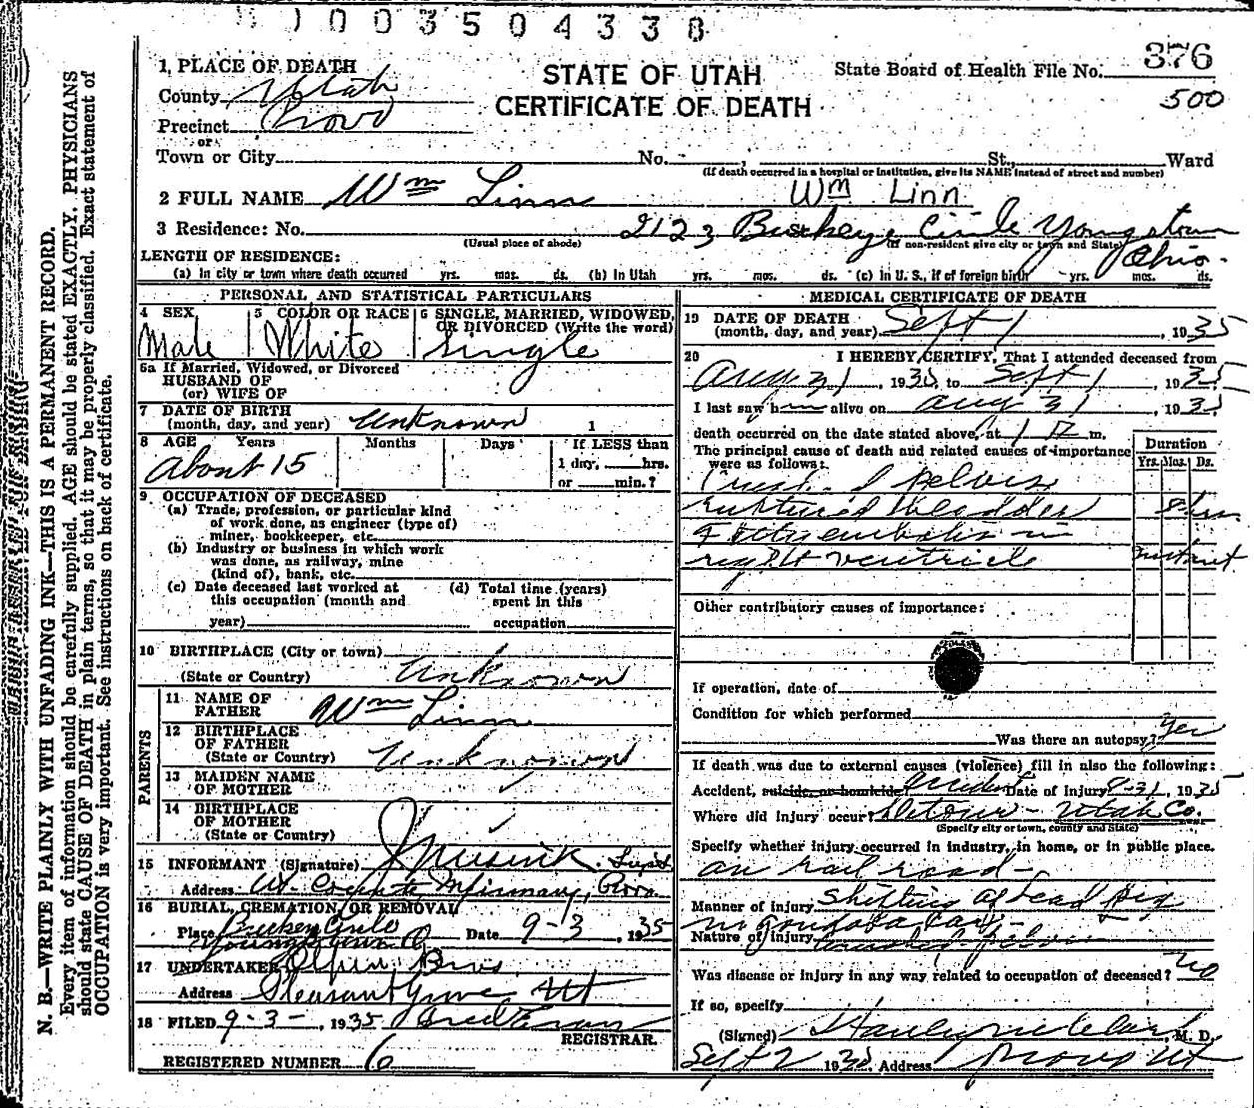 1003504338
376
500
STATE OF UTAH
CERTIFICATE OF DEATH
State Board of Health File No.
1, PLACE OF DEATH
County Utah
Precinct Provo
or
Town or City No. , St., Ward
(If death occurred in a hospital or institution, give its NAME instead of street and number)
2 FULL NAME Wm Linn Wm Linn
3 Residence: No. 2123 Buckeye Circle Youngstown
(Usual place of abode) (If non-resident give city or town and State)
Ohio.
LENGTH OF RESIDENCE:
(a) In city or town where death occurred yrs. mos. ds. (b) In Utah yrs. mos. ds. (c) In U. S., if of foreign birth yrs. mos. ds.
PERSONAL AND STATISTICAL PARTICULARS
4 SEX 5 COLOR OR RACE 6 SINGLE, MARRIED, WIDOWED, OR DIVORCED (Write the word)
Male White Single
6a If Married, Widowed, or Divorced
HUSBAND OF
(or) WIFE OF
7 DATE OF BIRTH
(month, day, and year) Unknown 1
8 AGE Years Months Days If LESS than
About 15 1 day, hrs.
or min.?
9. OCCUPATION OF DECEASED
(a) Trade, profession, or particular kind
of work done, as engineer (type of)
miner, bookkeeper, etc.
(b) Industry or business in which work
was done, as railway, mine
(kind of), bank, etc.
(c) Date deceased last worked at (d) Total time (years)
this occupation (month and spent in this
year) occupation
10 BIRTHPLACE (City or town)
(State or Country) Unknown
PARENTS
11 NAME OF
FATHER Wm Linn
12 BIRTHPLACE
OF FATHER
(State or Country) Unknown
13 MAIDEN NAME
OF MOTHER
14 BIRTHPLACE
OF MOTHER
(State or Country)
15 INFORMANT (Signature) Supt
Address Infirmary, Provo
16 BURIAL, CREMATION, OR REMOVAL
Place Date 9-3, 1935
Youngstown O
17 UNDERTAKER Olpin Bros
Address Pleasant Grove Ut
18 FILED 9-3-, 1935
REGISTRAR.
REGISTERED NUMBER 6
MEDICAL CERTIFICATE OF DEATH
19 DATE OF DEATH
(month, day, and year) Sept 1, 1935
20 I HEREBY CERTIFY, That I attended deceased from
Aug 31, 1935, to Sept 1, 1935
I last saw him alive on Aug 31, 1935
death occurred on the date stated above, at 1 m.
The principal cause of death and related causes of importance
were as follows:
Duration
Yrs. Mos. Ds.
Crush. pelvis
ruptured bladder 8 hrs
in
right ventricle instant
Other contributory causes of importance:
If operation, date of
Condition for which performed
Was there an autopsy? Yes
If death was due to external causes (violence) fill in also the following:
Accident, suicide, or homicide accident Date of Injury 8-31, 1935
Where did injury occur? Utah Co.
(Specify city or town, county and State)
Specify whether injury occurred in industry, in home, or in public place.
on rail road-
Manner of injury shifting of lead pig
in gondola car-
Nature of injury crushed pelvis
Was disease or injury in any way related to occupation of deceased? no
If so, specify
(Signed) M. D.
Sept 2 1935. Address Provo Ut
N. B.—WRITE PLAINLY WITH UNFADING INK—THIS IS A PERMANENT RECORD.
Every item of information should be carefully supplied. AGE should be stated EXACTLY. PHYSICIANS
should state CAUSE OF DEATH in plain terms, so that it may be properly classified. Exact statement of
OCCUPATION is very important. See instructions on back of certificate.